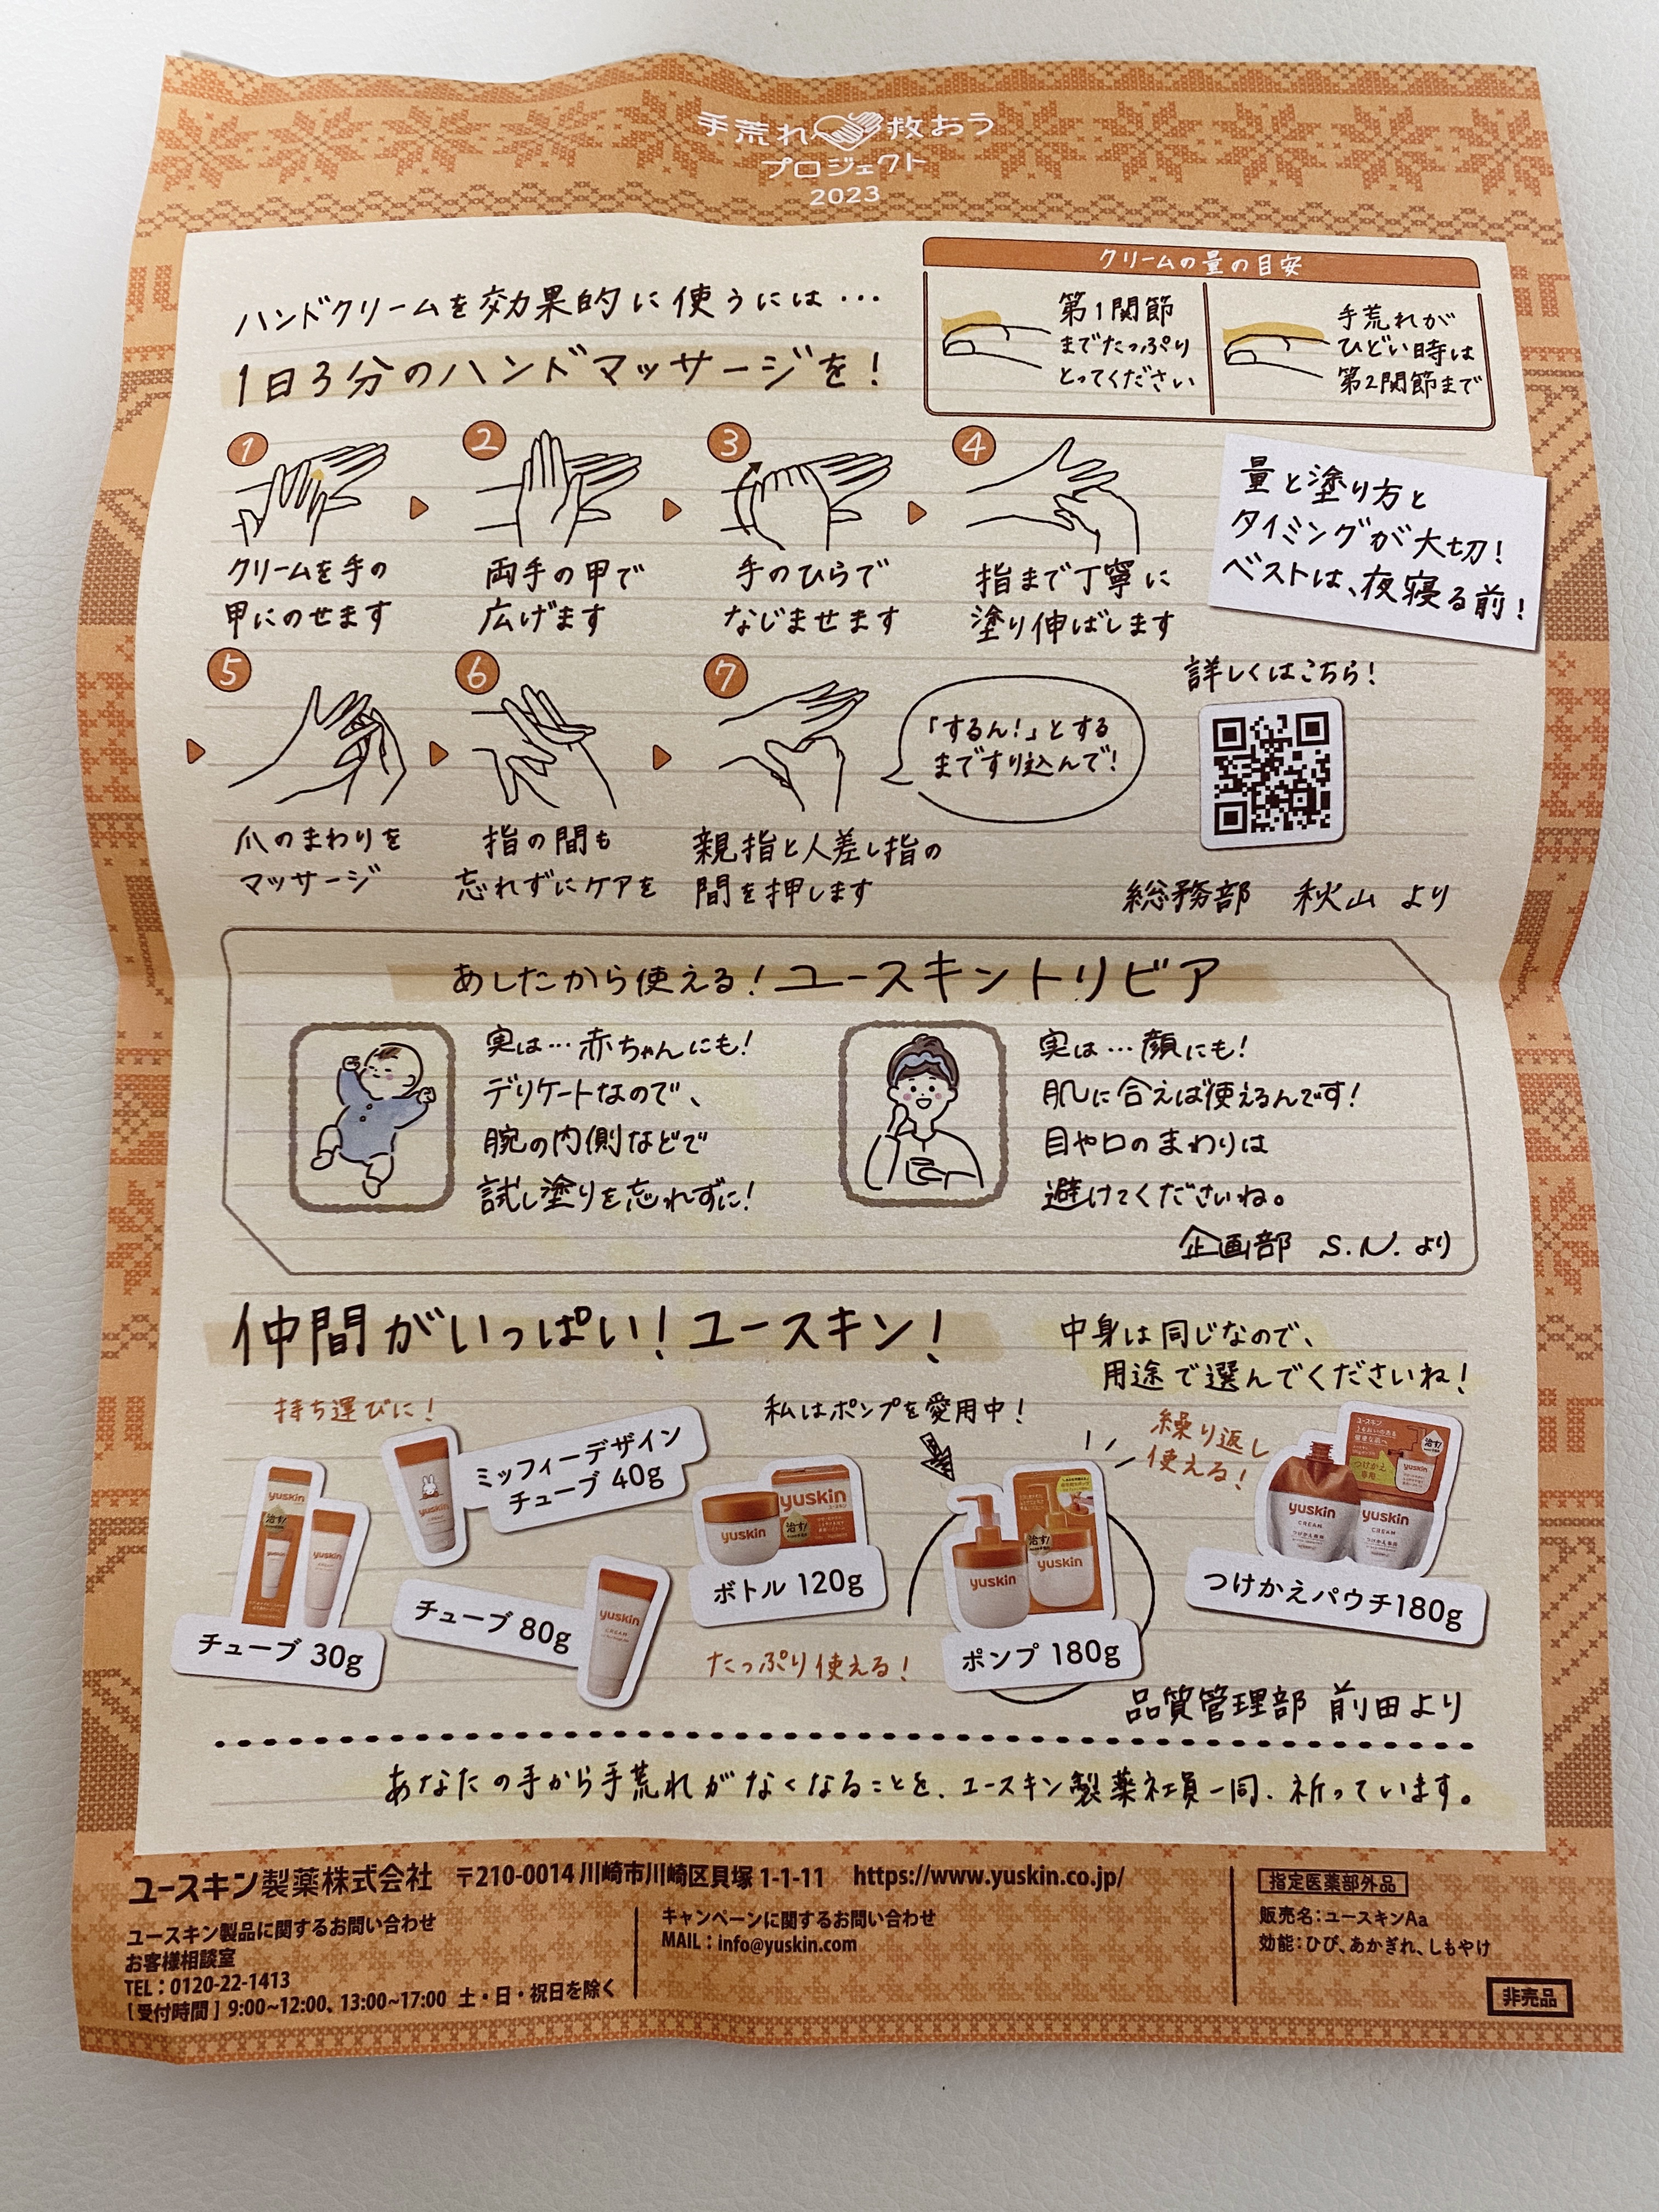 手荒れ救おう
プロジェクト
2023
ハンドクリームを効果的に使うには…
1日3分のハンドマッサージを!
クリームの量の目安
第1関節
までたっぷり
とってください
手荒れが
ひどい時は
第2関節まで
量と塗り方と
タイミングが大切!
ベストは、夜寝る前!
1
クリームを手の
甲にのせます
2
両手の甲で
広げます
3
手のひらで
なじませます
4
指まで丁寧に
塗り伸ばします
5
爪のまわりを
マッサージ
6
指の間も
忘れずにケアを
7
親指と人差し指の
間を押します
「するん!」とする
まですり込んで!
詳しくはこちら!
総務部 秋山 より
あしたから使える!ユースキントリビア
実は…赤ちゃんにも!
デリケートなので、
腕の内側などで
試し塗りを忘れずに!
実は…顔にも!
肌に合えば使えるんです!
目や口のまわりは
避けてくださいね。
企画部 S.N. より
仲間がいっぱい!ユースキン!
中身は同じなので、
用途で選んでくださいね!
持ち運びに!
yuskin
治す!
yuskin
チューブ 30g
ミッフィーデザイン
チューブ 40g
チューブ 80g
yuskin
CREAM
yuskin
yuskin
ユースキン
治す!
ボトル 120g
たっぷり使える!
私はポンプを愛用中!
yuskin
治す!
yuskin
ポンプ 180g
繰り返し
使える!
ユースキン
治す!
yuskin
つけかえ
専用
yuskin
CREAM
つけかえ専用
yuskin
CREAM
つけかえ専用
つけかえパウチ180g
品質管理部 前田より
あなたの手から手荒れがなくなることを、ユースキン製薬社員一同、祈っています。
ユースキン製薬株式会社 〒210-0014 川崎市川崎区貝塚 1-1-11 https://www.yuskin.co.jp/
ユースキン製品に関するお問い合わせ
お客様相談室
TEL:0120-22-1413
[受付時間] 9:00~12:00、13:00~17:00 土・日・祝日を除く
キャンペーンに関するお問い合わせ
MAIL:info@yuskin.com
指定医薬部外品
販売名:ユースキンAa
効能:ひび、あかぎれ、しもやけ
非売品